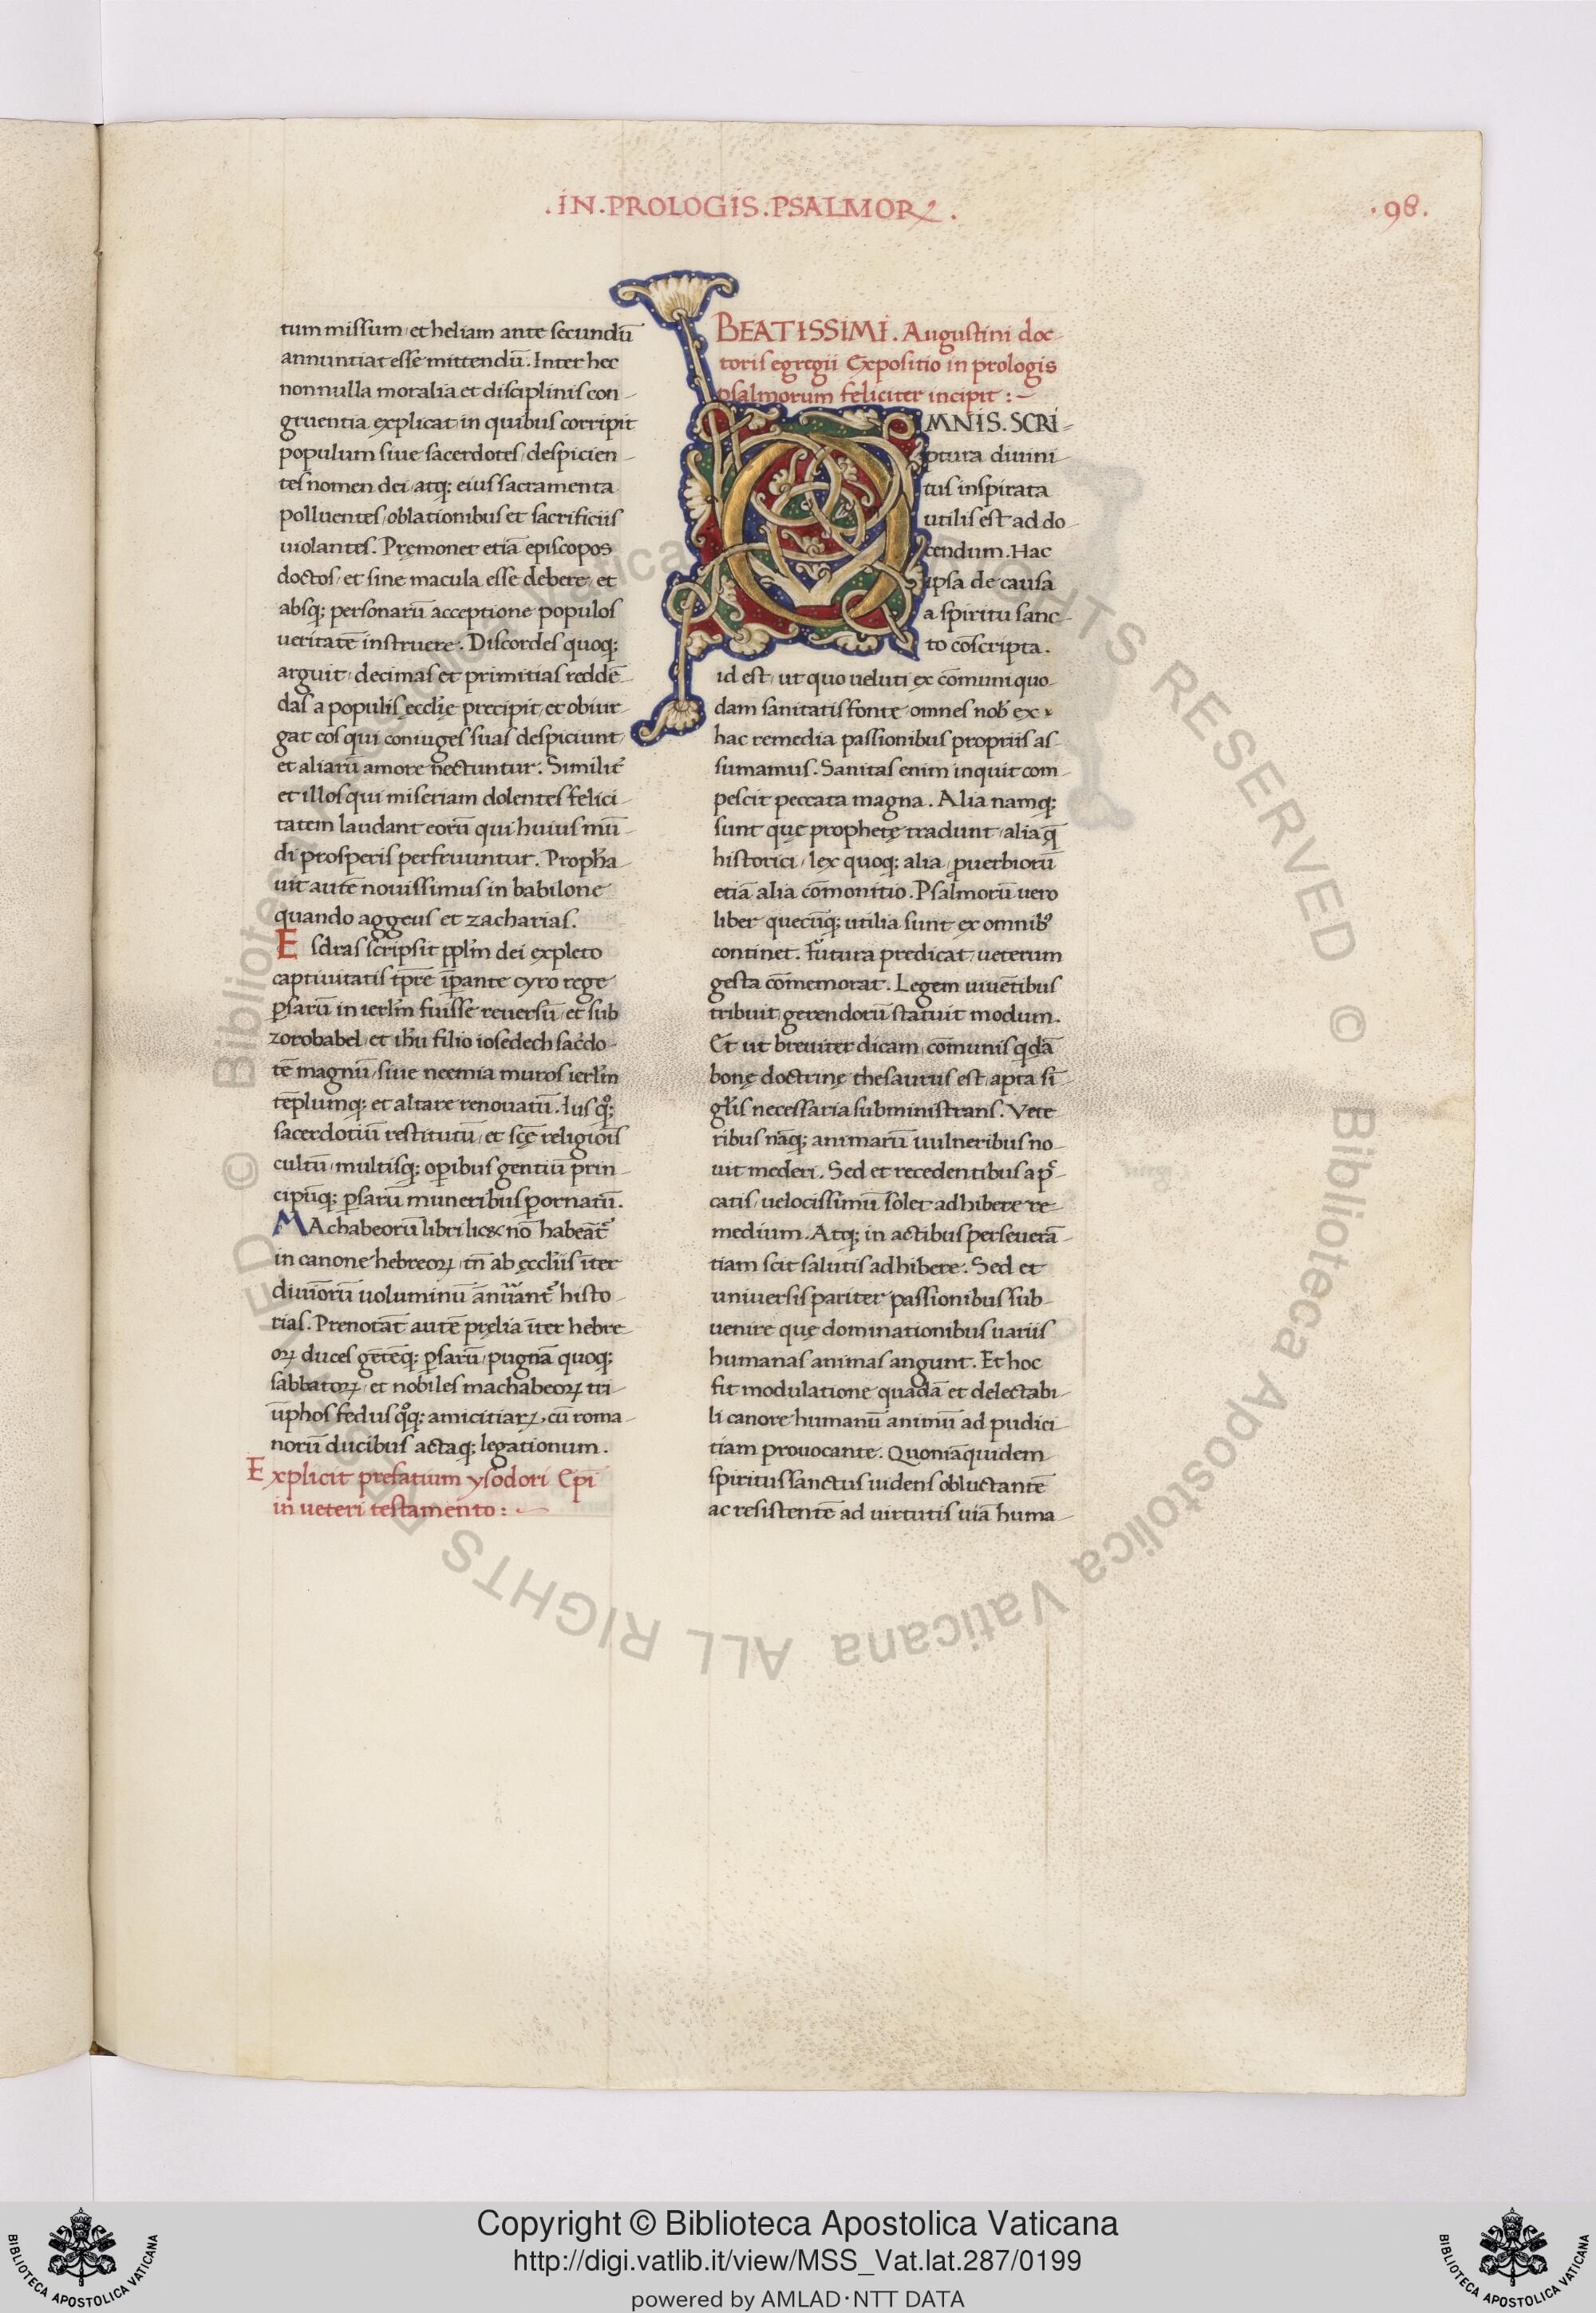 .IN.PROLOGIS.PSALMORꝝ.
.98.
tum missum, et heliam ante secundū
annuntiat esse mittendū. Inter hec
nonnulla moralia et disciplinis con-
gruentia explicat, in quibus corripit
populum siue sacerdotes, despicien-
tes nomen dei, atq; eius sacramenta
polluentes, oblationibus et sacrificiis
uiolantes. Pręmonet etiā episcopos
doctos, et sine macula esse debere, et
absq; personarū acceptione populos
ueritatē instruere. Discordes quoq;
arguit, decimas et primitias reddē-
das a populis ęccl'ię precipit, et obiur-
gat eos qui coniuges suas despiciunt,
et aliarū amore nectuntur. Similit̛
et illos qui miseriam dolentes felici-
tatem laudant eorū qui huius mū-
di prosperis perfruuntur. Proph̄a-
uit autē nouissimus in babilone
quando aggeus et zacharias.
Esdras scripsit pp̄lm dei expleto
captiuitatis tp̄re īꝑante cyro rege
ꝑsarū in ierl̄m fuisse reuersū, et sub
zorobabel, et ih̄u filio iosedech sac̛do-
tē magnū, siue neemia muros ierl̄m
tēplumq; et altare renouatū. Ius qͦ;
sacerdotiū restitutū, et scę̄ religiōīs
cultū, multisq; oꝑibus gentiū prin-
cipūq; ꝑsarū muneribus ꝑornatū.
MAchabeorū libri lic& nō habeāt̛
in canone hebreoꝝ, tn̄ ab ęccl'iis īter
diuīorū uoluminū ānuānt̛ histo-
rias. Prenotāt autē pręlia īter hebre-
oꝝ duces gētēq; ꝑsarū, pugnā quoq;
sabbatoꝝ, et nobiles machabeoꝝ tri-
ūphos fedus qͦq; amicitiaꝝ, cū roma-
norū ducibus actaq; legationum.
Explicit prefatium ysodori Epī
in ueteri testamento: -
BEATISSIMI. Augustini doc-
toris egregii Expositio in prologis
psalmorum feliciter incipit: -
OMNIS. SCRI-
ptura diuini-
tus inspirata
utilis est ad do-
cendum. Hac
ipsa de causa
a spiritu sanc-
to cōscripta.
id est, ut quo ueluti ex cōmuni quo-
dam sanitatis fonte, omnes nob̛ ex
hac remedia passionibus propriis as-
sumamus. Sanitas enim inquit com-
pescit peccata magna. Alia namq;
sunt quę prophetę tradunt, alia q̄
historici, lex quoq; alia, ꝓuerbiorū
etiā alia cōmonitio. Psalmorū uero
liber quecūq; utilia sunt ex omnib̛
continet. Futura predicat, ueterum
gesta cōmemorat. Legem uiuētibus
tribuit, gerendorū statuit modum.
Et ut breuiter dicam, cōmunis q̇dā
bonę doctrinę thesaurus est, apta sī-
gl'is necessaria subministrans. Vete-
ribus nāq; animarū uulneribus no-
uit mederi. Sed et recedentibus a pc̄-
catis, uelocissimū solet adhibere re-
medium. Atq; in actibus perseuerā-
tiam scit salutis adhibere. Sed et
uniuersis pariter passionibus sub-
uenire quę dominationibus uariis
humanas animas angunt. Et hoc
fit modulatione quadā et delectabi-
li canore humanū animū ad pudici-
tiam prouocante. Quoniāquidem
spiritus sanctus uidens obluctantē
ac resistentē ad uirtutis uiā huma-
© Biblioteca Apostolica Vaticana ALL RIGHTS RESERVED
Copyright © Biblioteca Apostolica Vaticana
http://digi.vatlib.it/view/MSS_Vat.lat.287/0199
powered by AMLAD·NTT DATA
BIBLIOTECA APOSTOLICA VATICANA
BIBLIOTECA APOSTOLICA VATICANA